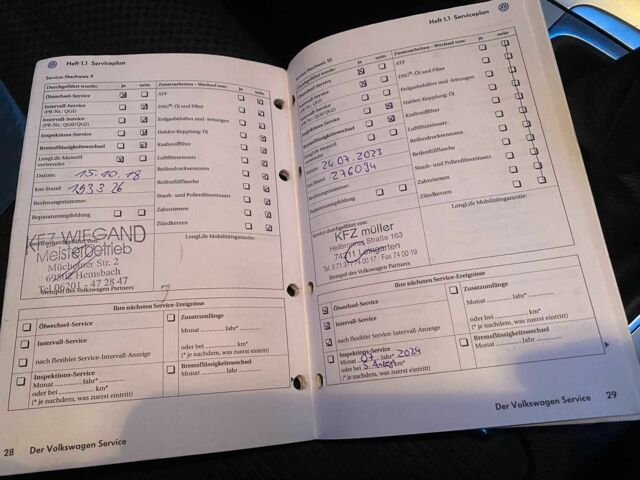 Heft 1.1 Serviceplan
Service-Nachweis 9
Durchgeführt wurde: ja nein
Ölwechsel-Service
Intervall-Service
(PR-Nr.: QG1)
Intervall-Service
(PR-Nr.: QG0/QG2)
Inspektions-Service
Bremsflüssigkeitswechsel
LongLife Motoröl
verwendet
Datum: 15.10.18
km-Stand: 193326
Rechnungsnummer:
Reparaturempfehlung
Zusatzarbeiten - Wechsel von: ja nein
ATF
DSG®-Öl und Filter
Erdgasbehälter und -leitungen
Haldex-Kupplung: Öl
Kraftstofffilter
Luftfiltereinsatz
Reifendrucksensoren
Reifenfüllflasche
Staub- und Pollenfiltereinsatz
Zahnriemen
Zündkerzen
Service durchgeführt von:
KFZ WIEGAND
Meisterbetrieb
Müchelner Str. 2
69502 Hemsbach
Tel 06201 - 47 28 47
Stempel des Volkswagen Partners
LongLife Mobilitätsgarantie:
Ihre nächsten Service-Ereignisse
Ölwechsel-Service
Intervall-Service
nach flexibler Service-Intervall-Anzeige
Inspektions-Service
Monat .......... Jahr*
oder bei .......... km*
(* je nachdem, was zuerst eintritt)
Zusatzumfänge
Monat .......... Jahr*
oder bei .......... km*
(* je nachdem, was zuerst eintritt)
Bremsflüssigkeitswechsel
Monat .......... Jahr
28 Der Volkswagen Service
Heft 1.1 Serviceplan
Service-Nachweis 10
Durchgeführt wurde: ja nein
Ölwechsel-Service
Intervall-Service
(PR-Nr.: QG1)
Intervall-Service
(PR-Nr.: QG0/QG2)
Inspektions-Service
Bremsflüssigkeitswechsel
LongLife Motoröl
verwendet
Datum: 24.07.2023
km-Stand: 276094
Rechnungsnummer:
Reparaturempfehlung
Zusatzarbeiten - Wechsel von: ja nein
ATF
DSG®-Öl und Filter
Erdgasbehälter und -leitungen
Haldex-Kupplung: Öl
Kraftstofffilter
Luftfiltereinsatz
Reifendrucksensoren
Reifenfüllflasche
Staub- und Pollenfiltereinsatz
Zahnriemen
Zündkerzen
Service durchgeführt von:
KFZ müller
Heilbronner Straße 163
74211 Leingarten
Stempel des Volkswagen Partners
LongLife Mobilitätsgarantie:
Ihre nächsten Service-Ereignisse
Ölwechsel-Service
Intervall-Service
nach flexibler Service-Intervall-Anzeige
Inspektions-Service
Monat 07 Jahr* 2024
oder bei km*
(* je nachdem, was zuerst eintritt)
Zusatzumfänge
Monat .......... Jahr*
oder bei .......... km*
(* je nachdem, was zuerst eintritt)
Bremsflüssigkeitswechsel
Monat .......... Jahr
Der Volkswagen Service 29